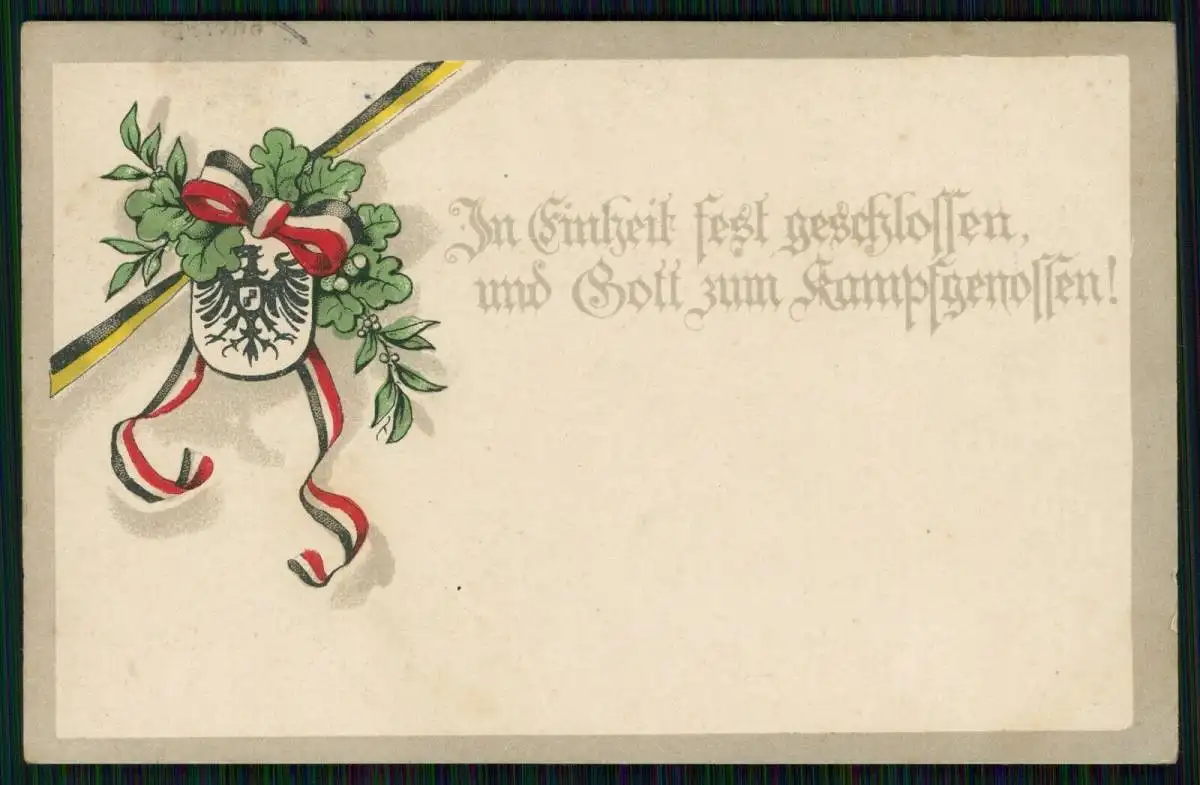 In Einheit fest geschlossen,
und Gott zum Kampfgenossen!